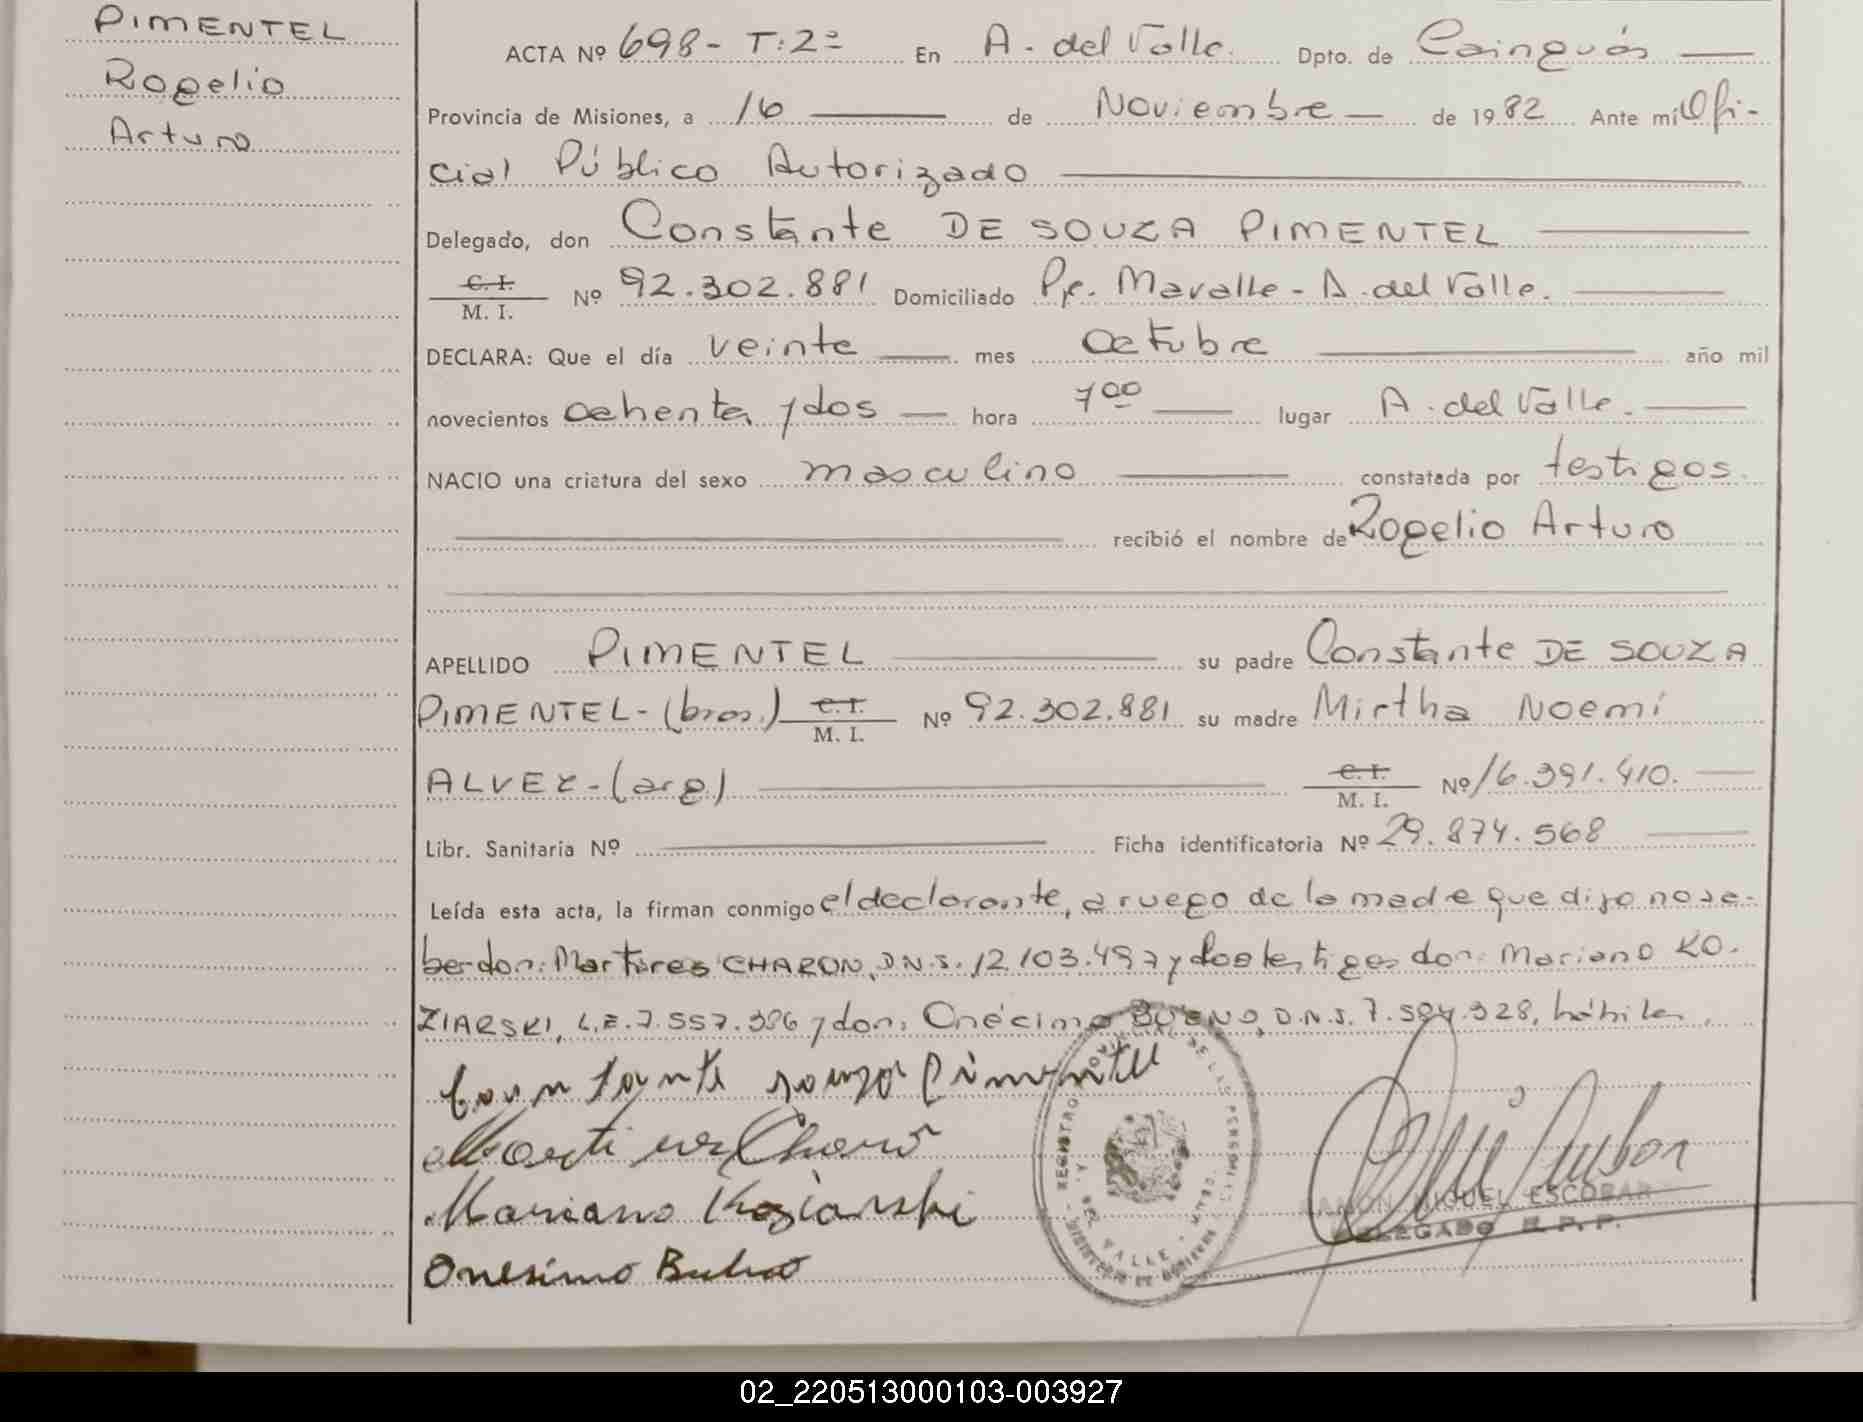 PIMENTEL
Rogelio
Arturo
ACTA Nº 698- T:2º En A. del Valle. Dpto. de Cainguás
Provincia de Misiones, a 16 de Noviembre de 1982 Ante mí Ofi-
cial Público Autorizado
Delegado, don Constante DE SOUZA PIMENTEL
C. I.
M. I. Nº 92.302.881 Domiciliado Pje. Mavalle - A. del Valle.
DECLARA: Que el día veinte mes octubre año mil
novecientos ochenta y dos hora 7 00 lugar A. del Valle.
NACIO una criatura del sexo masculino constatada por testigos.
recibió el nombre de Rogelio Arturo
APELLIDO PIMENTEL su padre Constante DE SOUZA
PIMENTEL- (bras.) C. I.
M. I. Nº 92.302.881 su madre Mirtha Noemí
ALVEZ - (arg) C. I.
M. I. Nº 16.391.410.
Libr. Sanitaria Nº Ficha identificatoria Nº 29.874.568
Leída esta acta, la firman conmigo el declarante, a ruego de la madre que dijo no sa-
ber don: Martires CHARON, D.N.I. 12.103.497 y dos testigos don: Mariano KO-
ZIARSKI, L.E. 7.557.386 y don: Onécimo BUENO, D.N.I. 7.504.328, hábiles.
Constante souza Pimentel
Martires Charon
Mariano Koziarski
Onesimo Bueno
REGISTRO PROVINCIAL DE LAS PERSONAS
MINISTERIO DE GOBIERNO
RAMON MIGUEL ESCOBAR
DELEGADO R. P. P.
02_220513000103-003927